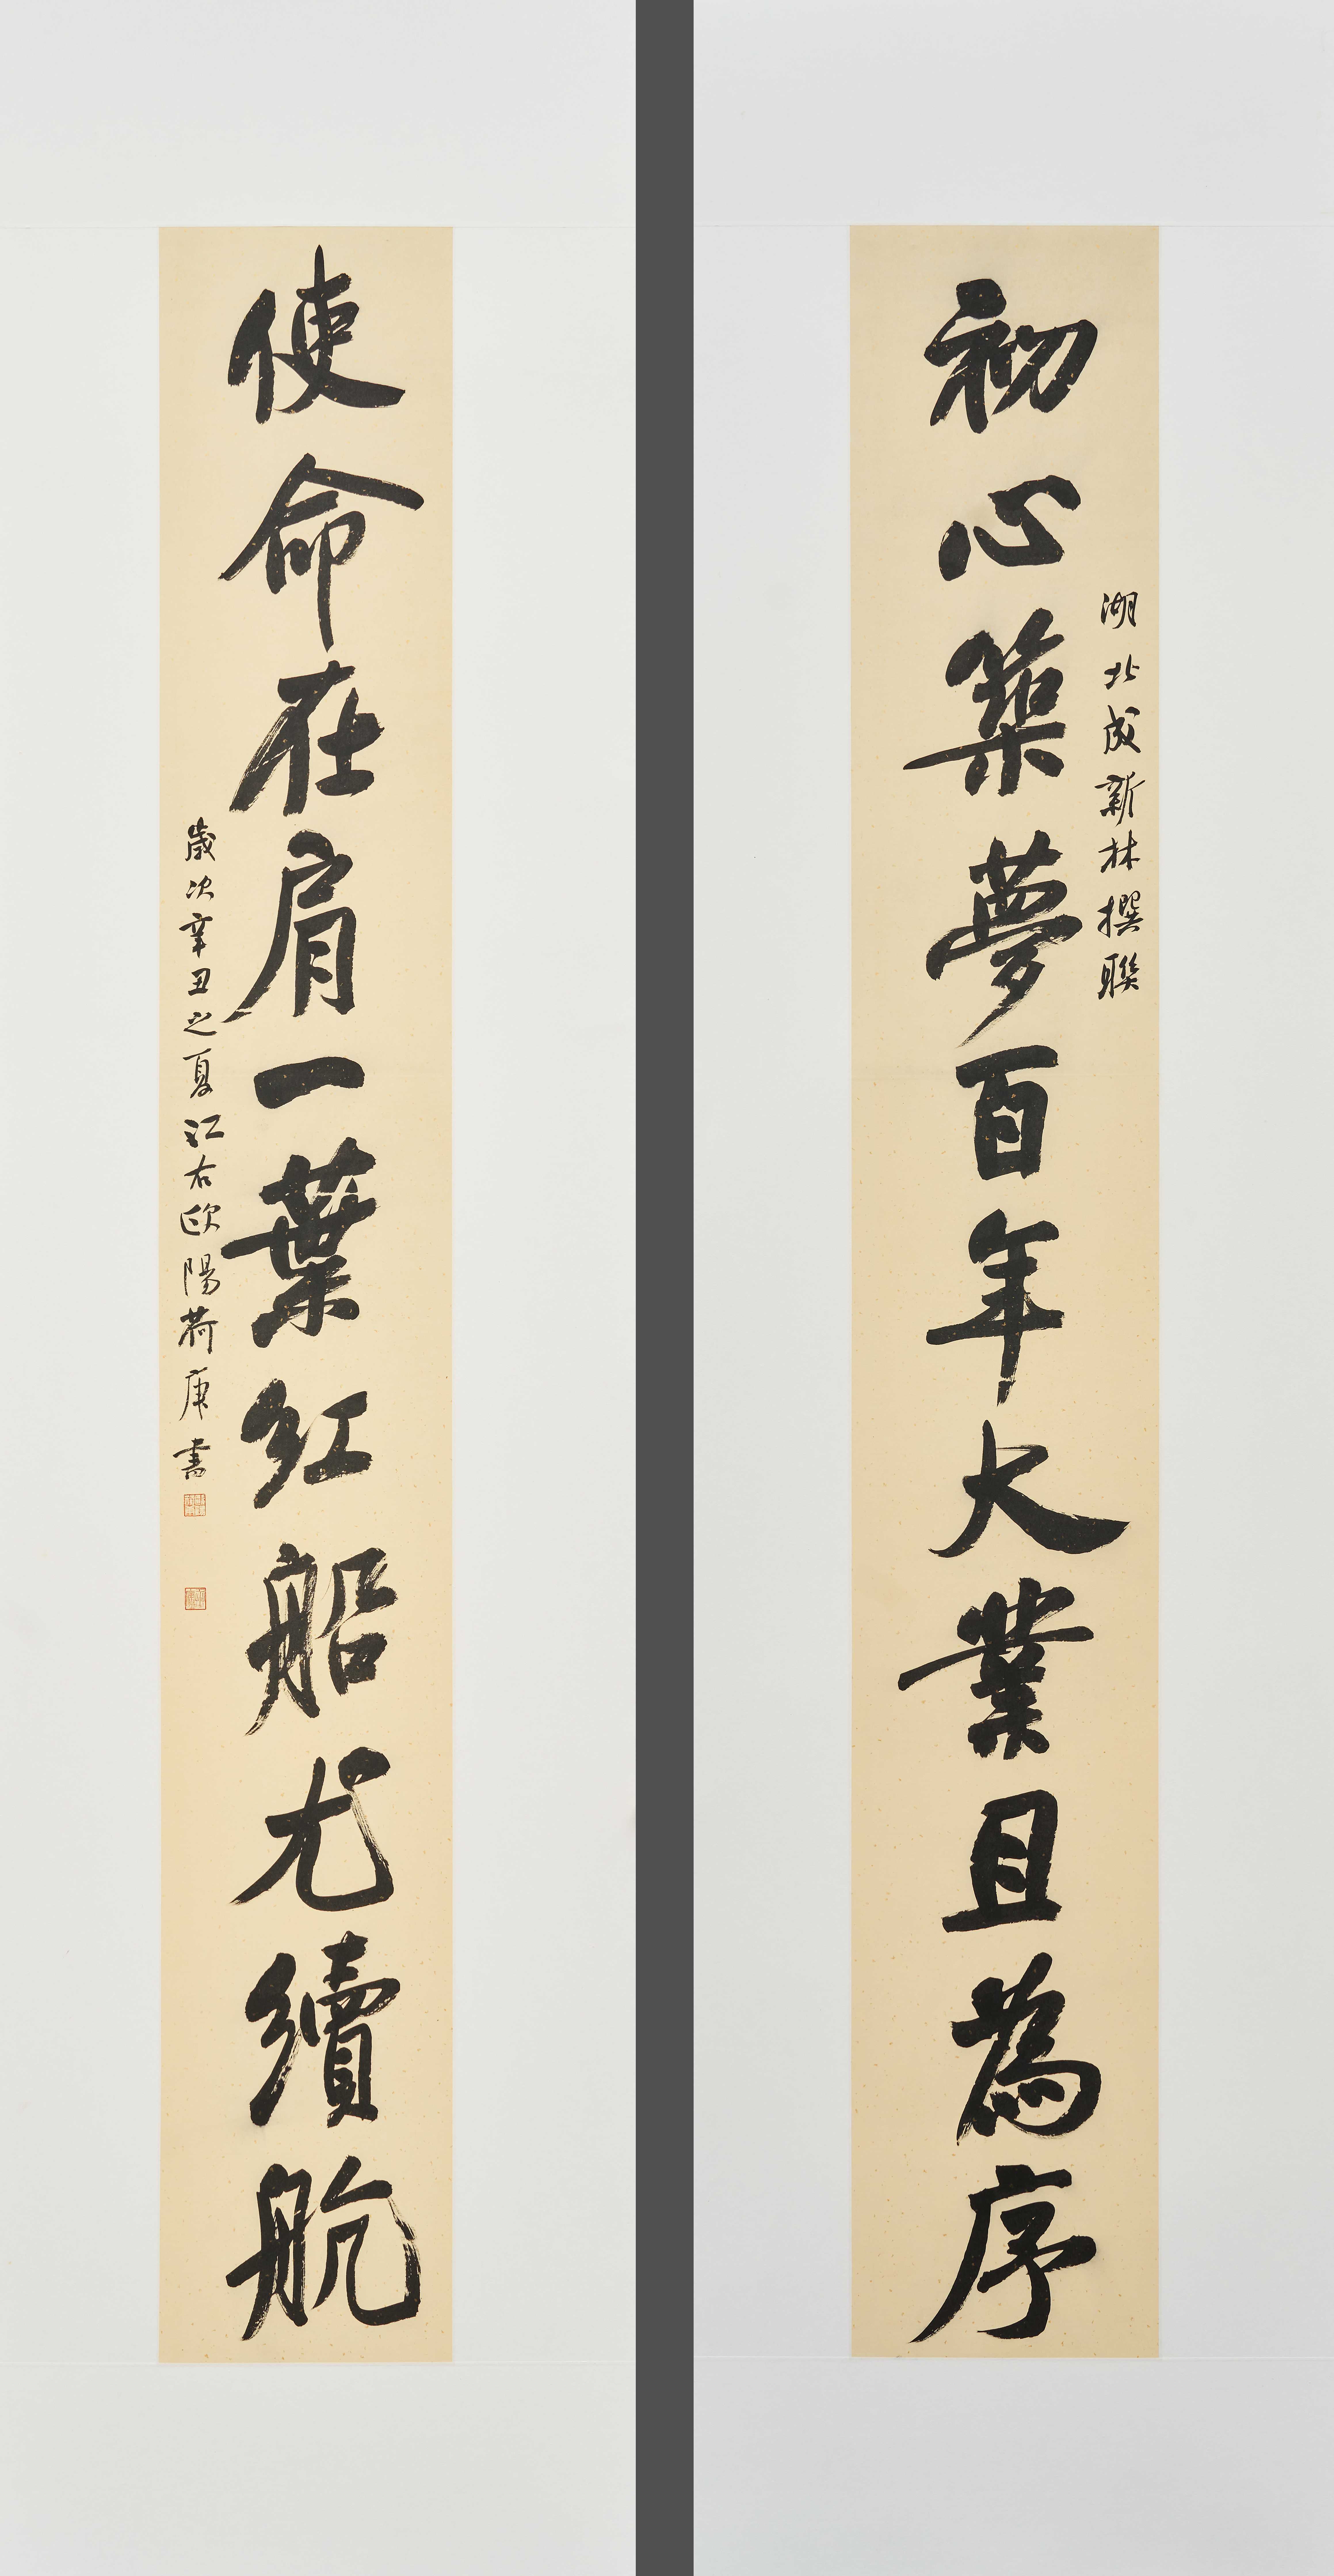 湖北成新林撰聯
初心築夢百年大業且為序
使命在肩一葉紅船尤續航
歲次辛丑之夏江右歐陽荷庚書